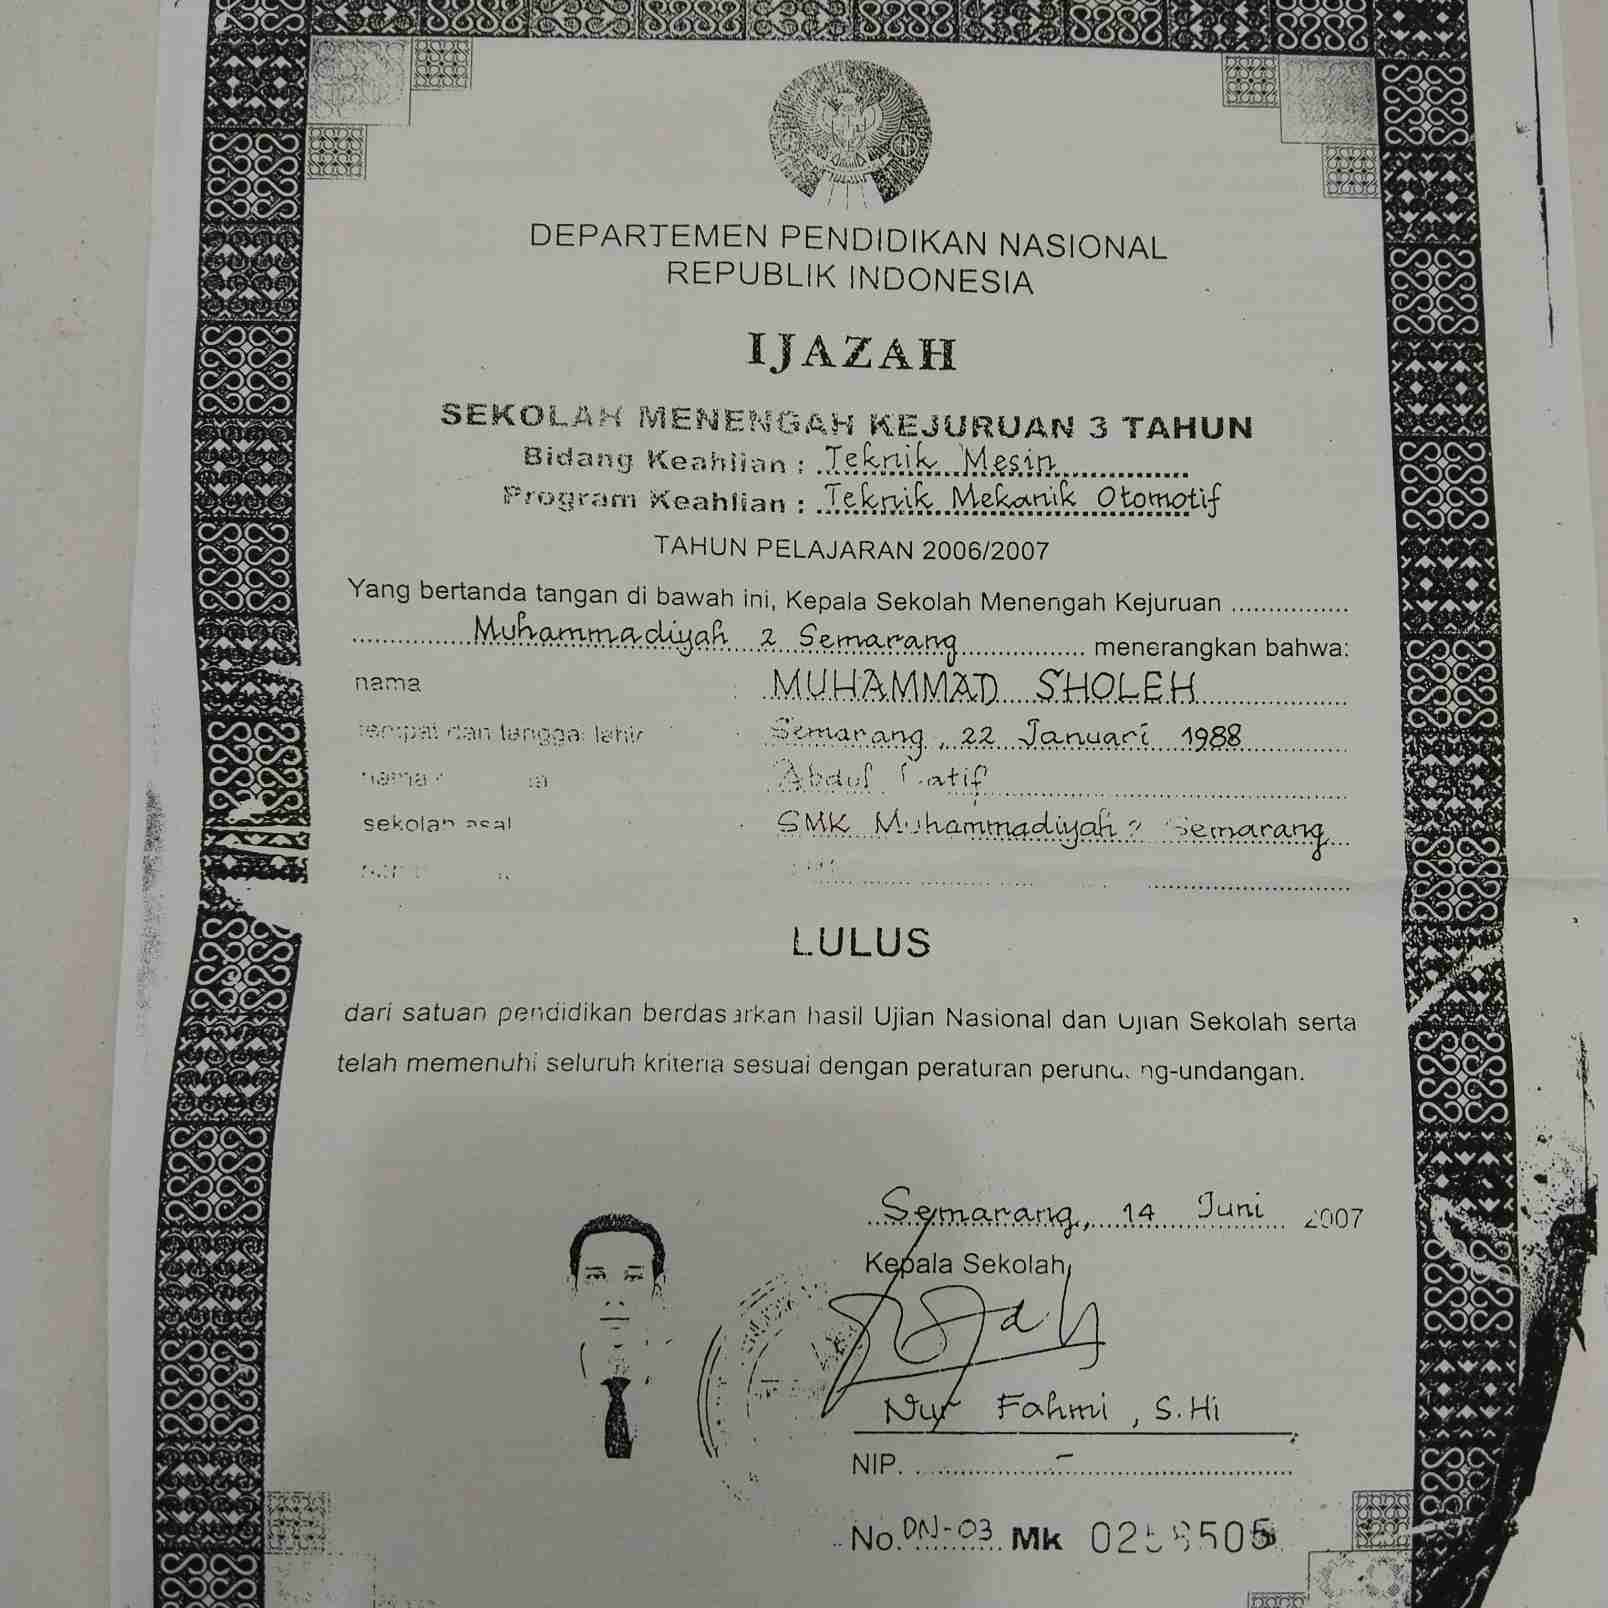 DEPARTEMEN PENDIDIKAN NASIONAL
REPUBLIK INDONESIA
IJAZAH
SEKOLAH MENENGAH KEJURUAN 3 TAHUN
Bidang Keahlian : Teknik Mesin
Program Keahlian : Teknik Mekanik Otomotif
TAHUN PELAJARAN 2006/2007
Yang bertanda tangan di bawah ini, Kepala Sekolah Menengah Kejuruan
Muhammadiyah 2 Semarang menerangkan bahwa:
nama : MUHAMMAD SHOLEH
tempat dan tanggal lahir : Semarang, 22 Januari 1988
nama Abdul
sekolah asal : SMK Muhammadiyah 2 Semarang
LULUS
dari satuan pendidikan berdasarkan hasil Ujian Nasional dan Ujian Sekolah serta
telah memenuhi seluruh kriteria sesuai dengan peraturan perundang-undangan.
Semarang, 14 Juni 2007
Kepala Sekolah,
Nur Fahmi, S.Hi
NIP. -
No. DN-03 Mk